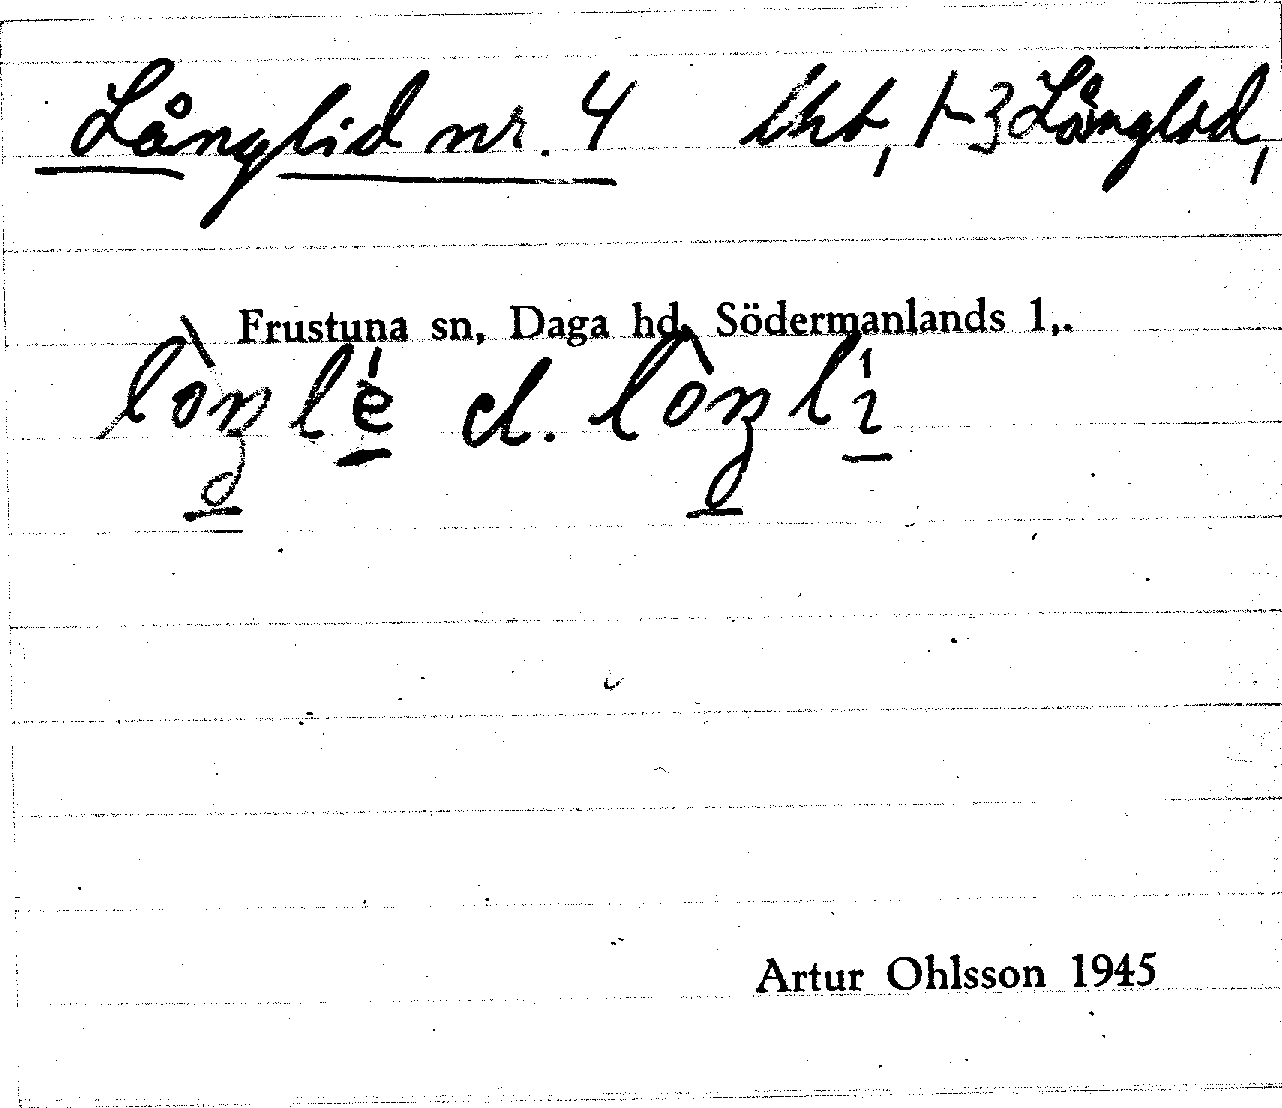 Långlid nr. 4 lht, 1-3 Långlid,
Frustuna sn, Daga hd, Södermanlands l,.
el.
Artur Ohlsson 1945